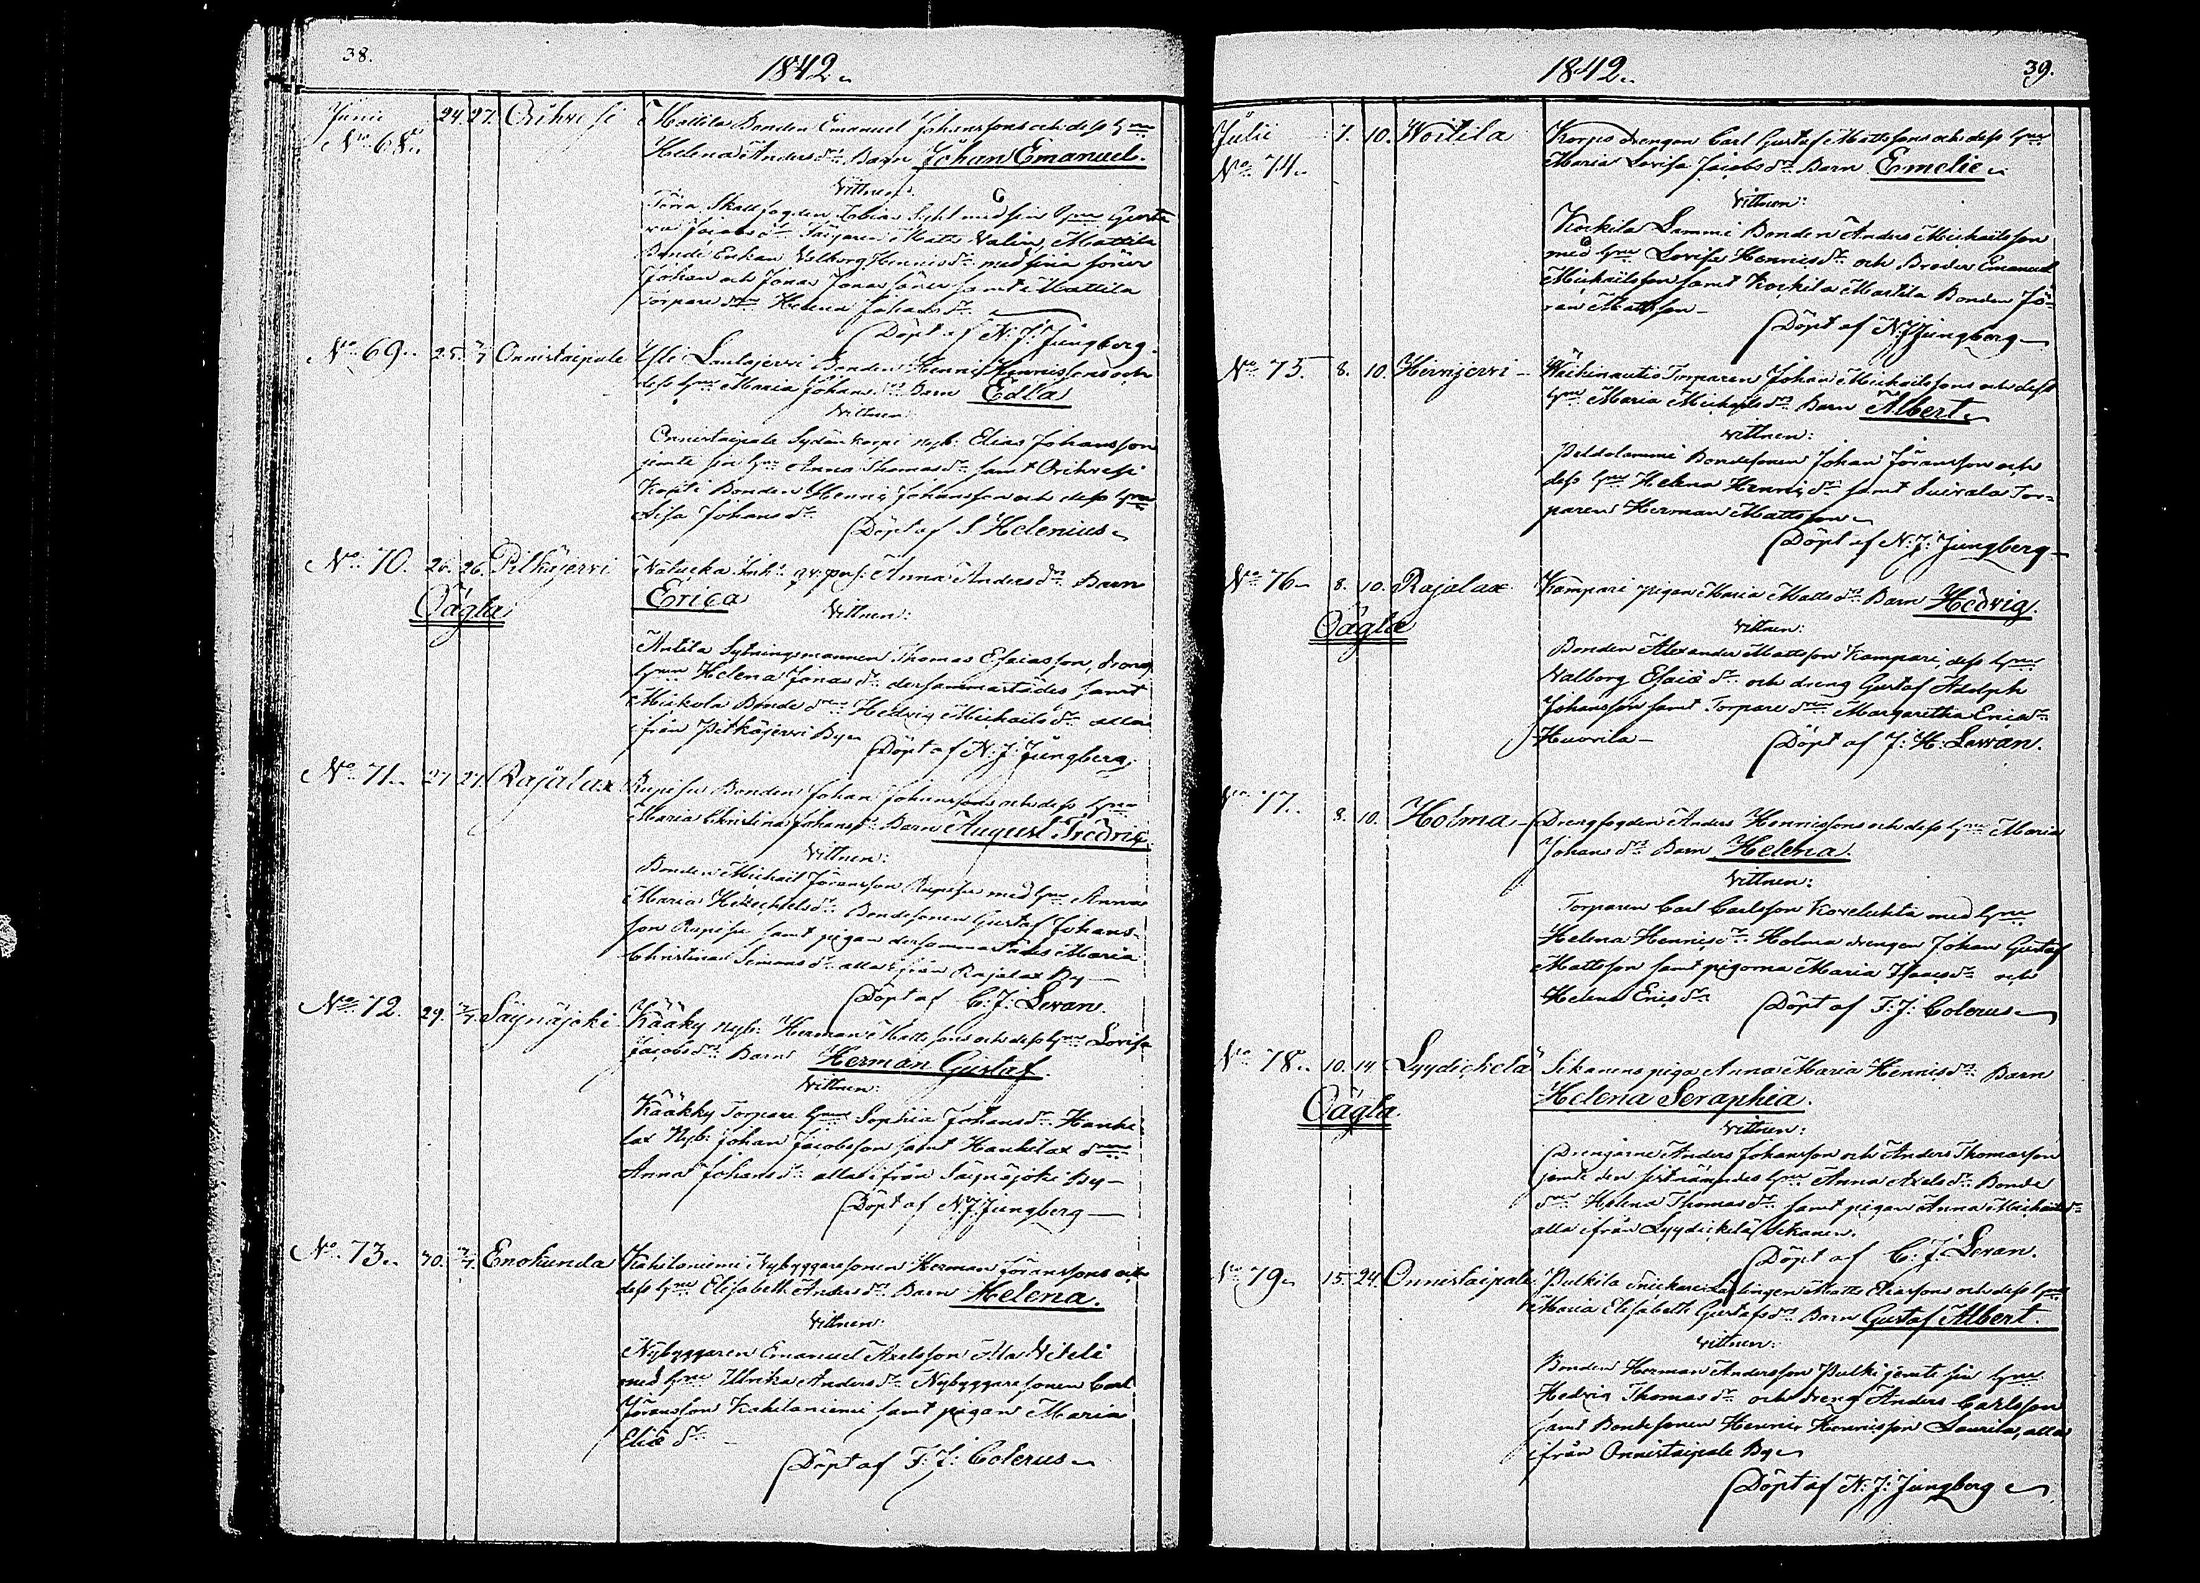 38.
1842.
Junii
No 68. 24. 27. Orihvesi Mattila Bonden Emanuel Johanssons och dess Hru
Helena Anders dr Barn Johan Emanuel.
Vittnen:
Tobias med sin Hru
Matts Valin, Mattila
Bonde Enkan Valborg Hennis dr med sina söner
Johan och Jonas Jonas söner samt Mattila
Torpare Helena Johans dr
Döpt af N: J: Jungberg.
No 69. 25. 3/7 Onnistaipale Yli Lautajervi Bonden Henric Henrissons och
dess Hru Maria Johans dr Barn Edla
Vittnen
Onnistaipale Sydänkorpi nyb: Elias Johansson
jemte sin Hru Anna Thomas dr samt Orihvesi
Bonden Henric Johansson och dess Hru
Lisa Johans dr
Döpt af S Helenius
No 70. 26. 26. Pitkäjervi Inh: qv:pers: Anna Anders dr Barn
Oägta Erica
Vittnen:
Antila Sytningsmannen Thomas Esaiasson, dreng
Hrun Helena Jonas dr dersammastädes samt
Mickola Bonde Hedvig Michaels dr alla
ifrån Pitkäjervi By
Döpt af N: J: Jungberg.
No 71. 27. 27. Rajalax Rupisu Bonden Johan Johanssons och dess Hru
Maria Christina Johans dr Barn August Fredric
Vittnen:
Bonden Michael Jöransson Rupisu med Hru Anna
Maria dr Bondesonen Gustaf Johans-
son Rupisu samt pigan dersammastädes Maria
Christina Simons dr alla ifrån Rajalax By
Döpt af C: J: Levan.
No 72. 29. 3/7 Säynäjoki Kääky nyb: Herman Matts sons och dess Hru Lovisa
Jacobs dr Barn Herman Gustaf.
Vittnen:
Kääkky Torpare Hru Sophia Johans dr Hanke
lax Nyb: Johan Jacobsson samt Hankelax
Anna Johans dr alla ifrån Säynäjoki By
Döpt af N: J: Jungberg
No 73. 30. 3/7. Enokunda Kahilaniemi Nybyggaresonen Herman Jöranssons och
dess Hru Elisabeth Anders dr Barn Helena.
Vittnen:
Nybyggaren Emanuel Axelsson Ala
med Hru Ulrika Anders dr Nybyggaresonen Carl
Jöransson Kahilaniemi samt pigan Maria
Eliæ dr
Döpt af F: J: Colerus
1842.
39.
Julii
No 74. 7. 10. Woitila Korpis drengen Carl Gustaf Mattssons och dess Hru
Maria Lovisa Jacobs dr Barn Emelie
Vittnen:
Kockila Lammi Bonden Anders Michaelsson
med Hru Lovisa Hennis dr och Broder Emanuel
Michaelsson samt Kockila Martila Bonden Jö-
ran Mattsson
Döpt af N: J: Jungberg
No 75. 8. 10. Hirvijervi Torparen Johan Michaelssons och dess
Hru Maria Michaels dr Barn Albert
Vittnen:
Bondesonen Johan Jöransson och
dess Hru Helena Hennis dr samt Tor-
paren Herman Mattsson
Döpt af N: J: Jungberg
No 76 8. 10. Rajalax Kampari pigan Maria Matts dr Barn Hedvig.
Oägta
Vittnen:
Bonden Alexander Mattsson Kampari, dess Hru
Valborg Esaiæ dr och dreng Gustaf Adolph
Johansson samt Torpare Margaretha Erics dr
Huovila
Döpt af J: H: Levan.
No 77. 8. 10. Holma Drengfogden Anders Hennissons och dess Hru Maria
Johans dr Barn Helena.
Vittnen:
Torparen Carl Carlsson Kovelahta med Hru
Helena Hennis dr Holma drengen Johan Gustaf
Mattsson samt pigorna Maria Isacs dr och
Helena Erics dr
Döpt af F: J: Colerus
No 78. 10. 14 Lyydickelä Sikanens piga Anna Maria Hennis dr Barn
Oägta Helena Seraphia.
Vittnen:
Drengarne Anders Johansson och Anders Thomasson
jemte den sistnämndes Hru Anna Axels dr Bonde
Helena Thomas dr samt pigan Anna Michaels dr
alla ifrån Lyydickelä Sikanen.
Döpt af C: J: Levan.
No 79 15. 24. Onnistaipale Pulkila Snickare Lärlingen Matts Eliassons och dess Hru
Maria Elisabeth Gustafs dr Barn Gustaf Albert.
Vittnen:
Bonden Herman Andersson Pulki jemte sin Hru
Hedvig Thomas dr och dreng Anders Carlsson
samt Bondesonen Henric Hennisson Laurila, alla
ifrån Onnistaipale By
Döpt af N: J: Jungberg